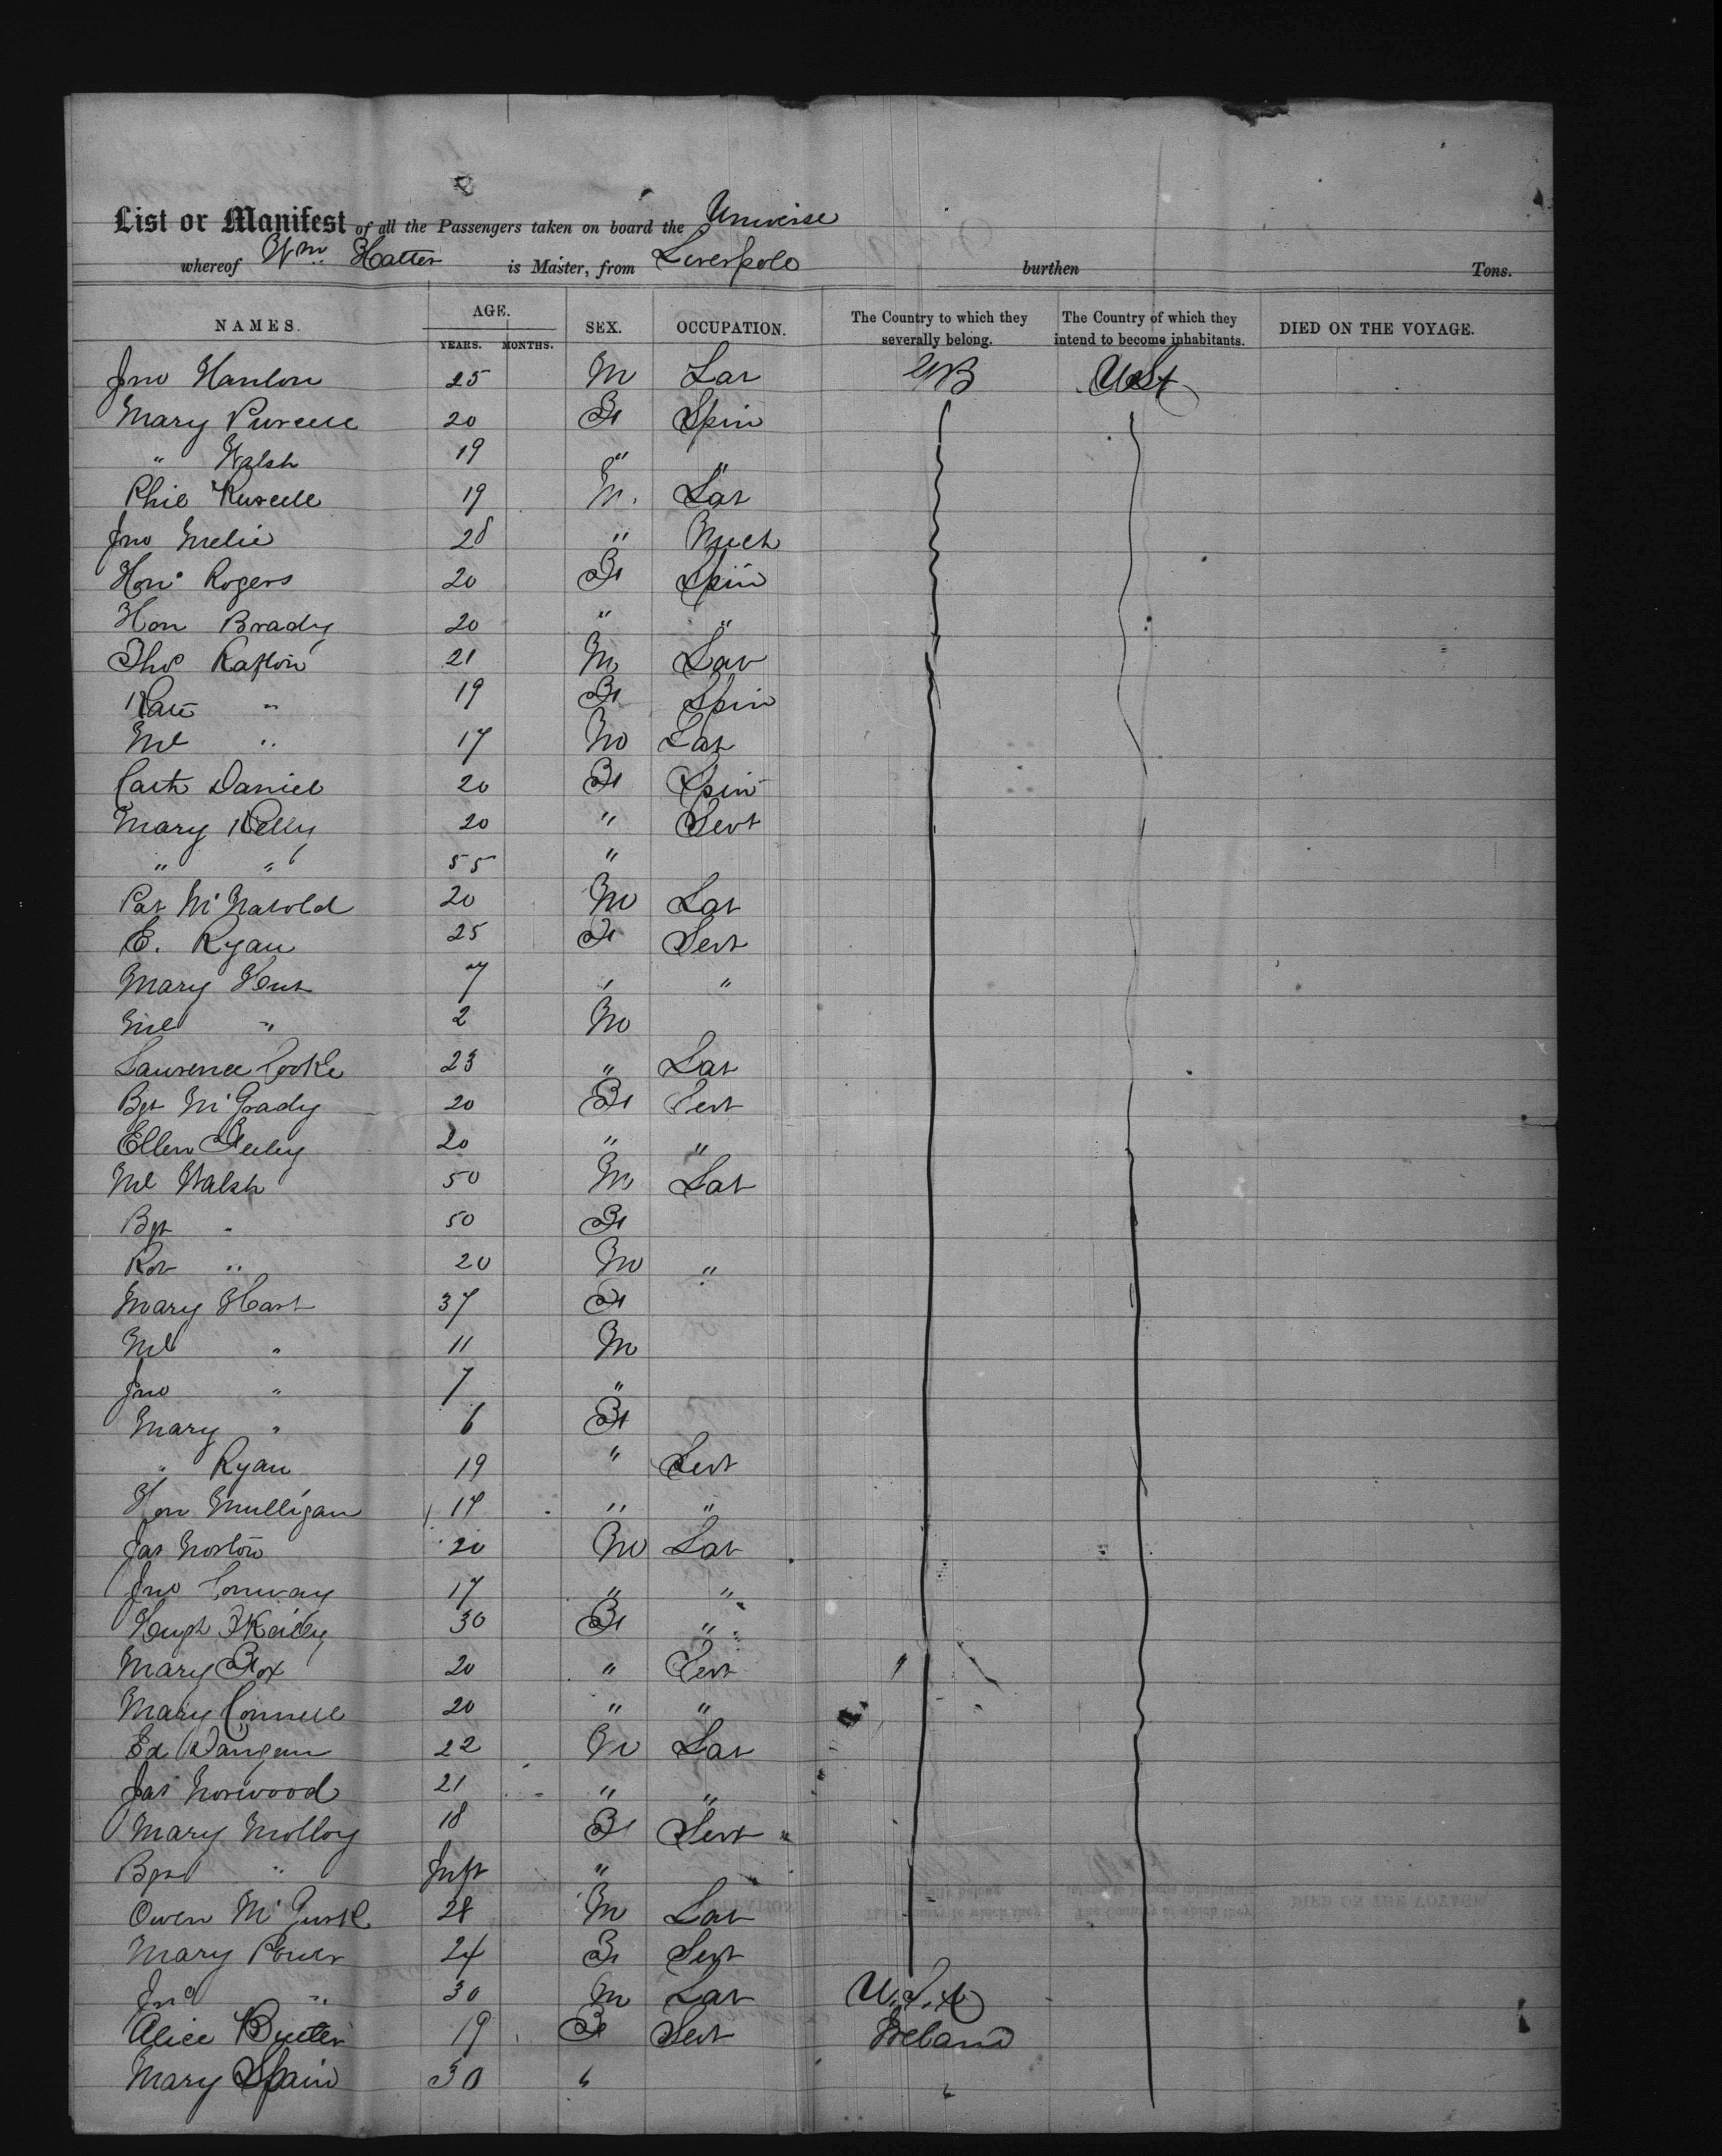 List or Manifest of all the Passengers taken on board the Universe
whereof Wm. Hatter is Master, from Liverpolo burthen Tons.
NAMES. AGE. SEX. OCCUPATION. The Country to which they severally belong. The Country of which they intend to become inhabitants. DIED ON THE VOYAGE.
YEARS. MONTHS.
Jno Hanlon 25 M Lar USA
Mary Purcell 20 F Spin
" Walsh 19 " "
Phil 19 M. Lar
Jno 28 " Mech
Hon Rogers 20 F Spin
Hon Brady 20 " "
Thos 21 M Lar
Kate " 19 F Spin
Ml " 17 M Lar
Cath Daniel 20 F Spin
Mary Kelly 20 " Sevt
" " 55 "
Pat 20 M Lar
E. Ryan 25 F Sevt
Mary 7 " "
Ml " 2 M
Laurence Cooke 23 " Lar
Bgt McGrady 20 F Sevt
Ellen 20 " "
Ml Walsh 50 M Lar
Bgt " 50 F
Rob " 20 M "
Mary Hart 37 F
Ml " 11 M
Jno " 7 "
Mary " 6 F
" Ryan 19 " Sevt
Hon Mulligan 17 " "
Jas Norton 20 M Lar
Jno Conway 17 " "
Hugh 30 F "
Mary Fox 20 " Sevt
Mary Connell 20 " "
Ed 22 M Lar
Jas Norwood 21 " "
Mary Molloy 18 F Sevt
Bgt " Inft "
Owen 28 M Lar
Mary Power 24 F Sevt
Jno " 30 M Lar U.S.A
Alice 19 F Sevt Ireland
Mary Spain 30 " "